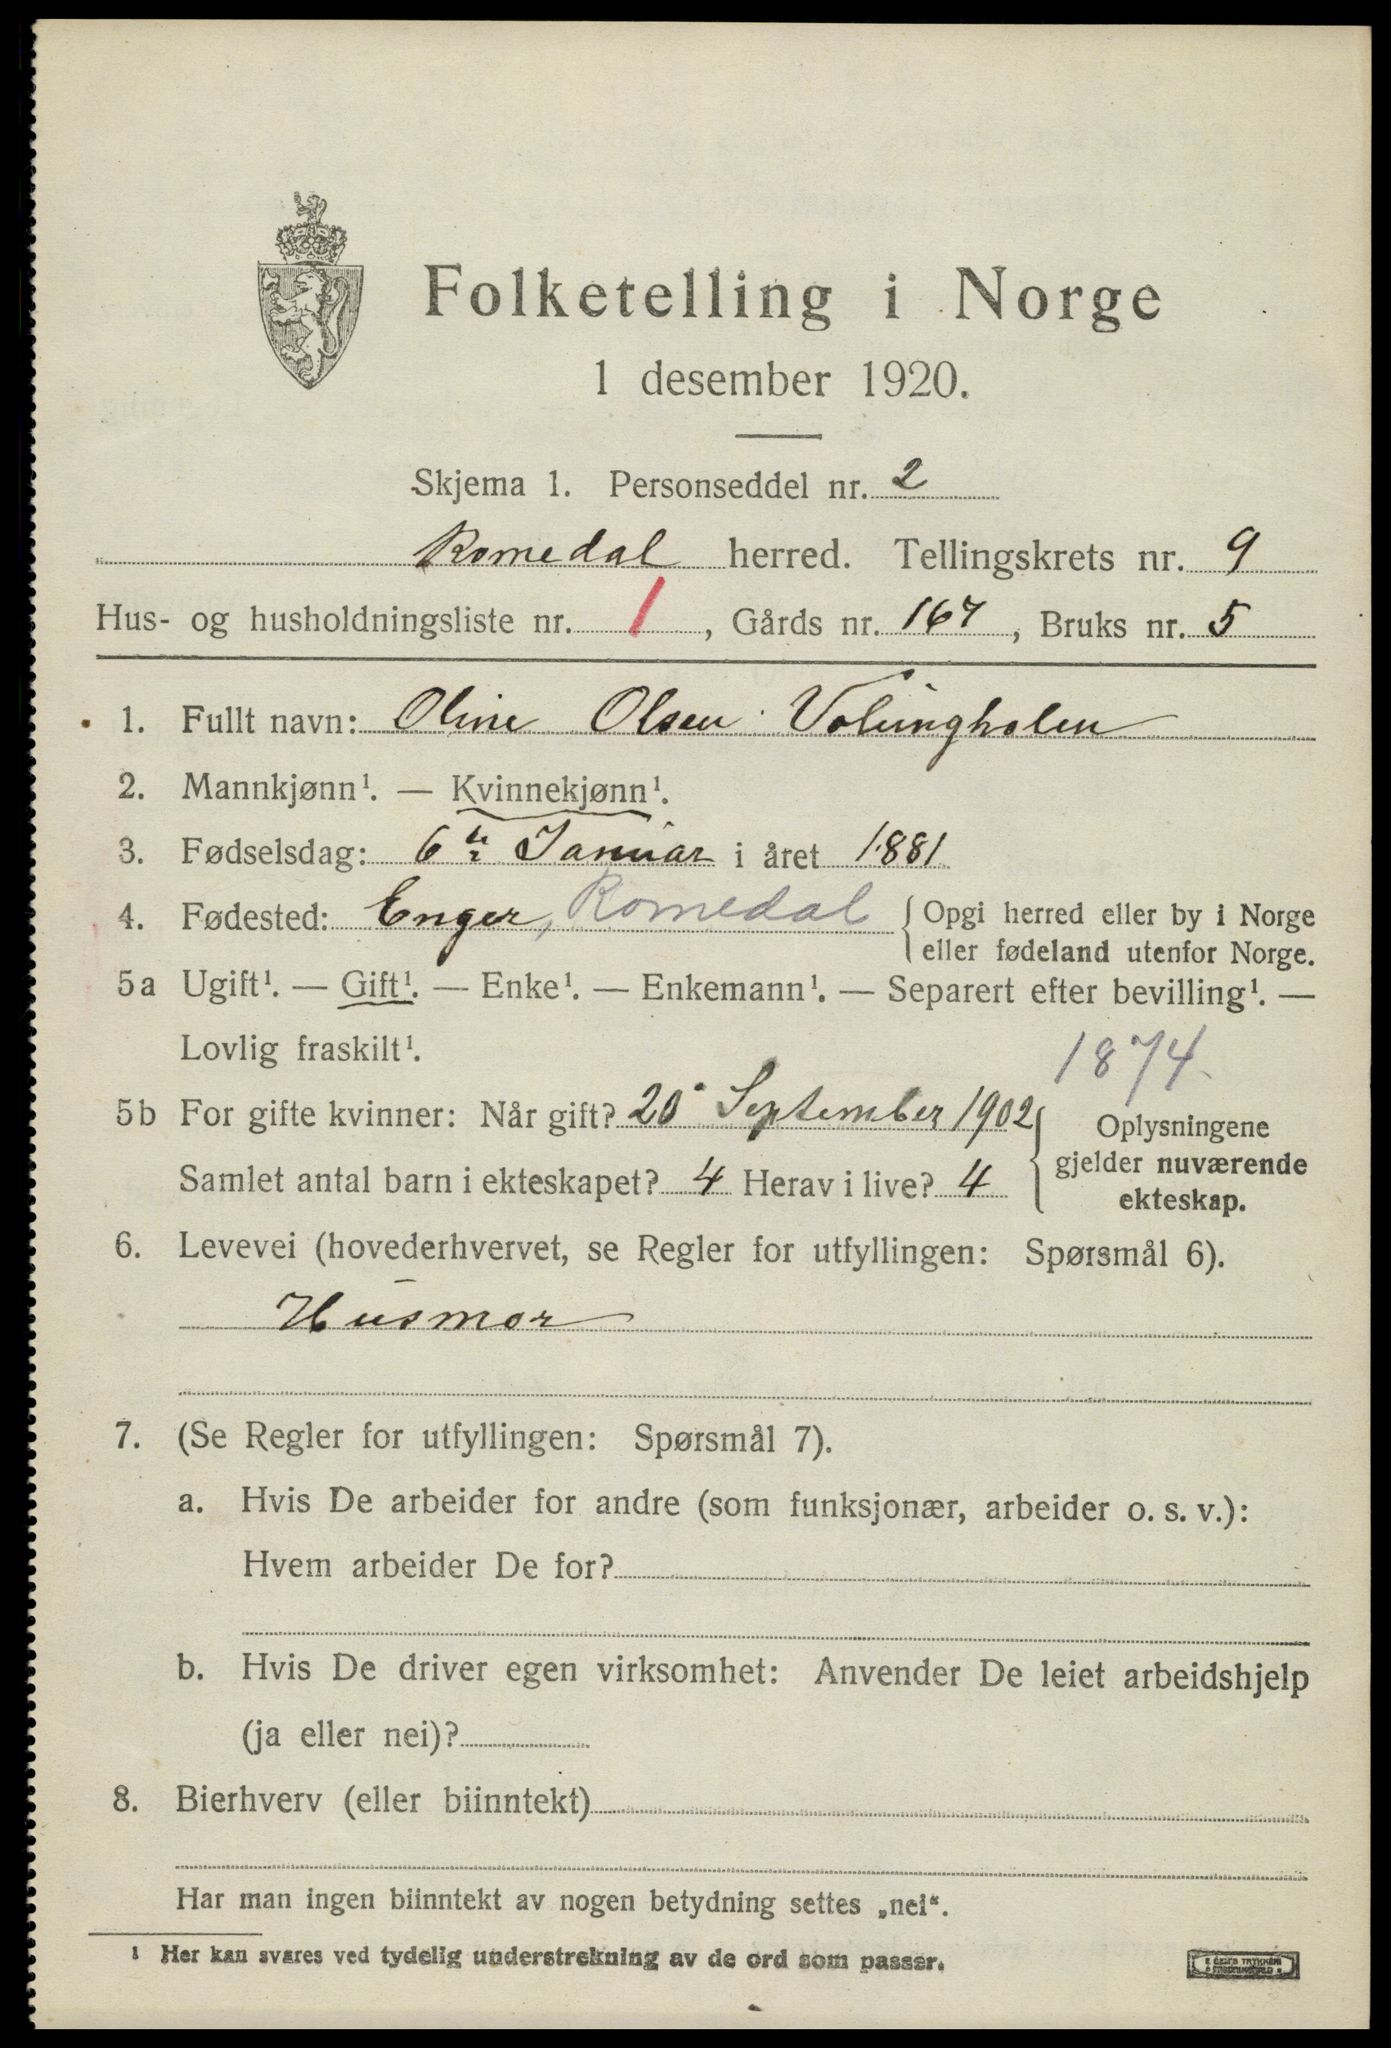 Folketelling i Norge
1 desember 1920.
Skjema 1. Personseddel nr. 2
Romedal herred. Tellingskrets nr. 9
Hus- og husholdningsliste nr. 1, Gårds nr. 167, Bruks nr. 5
1. Fullt navn: Oline Olsen Volungholen
2. Mannkjønn¹. — Kvinnekjønn¹.
3. Fødselsdag: 6te Januar i året 1881
4. Fødested: Enger, Romedal { Opgi herred eller by i Norge
eller fødeland utenfor Norge.
5a Ugift¹. — Gift¹. — Enke¹. — Enkemann¹. — Separert efter bevilling¹. —
Lovlig fraskilt¹.
1874.
5b For gifte kvinner: Når gift? 20 September 1902 { Oplysningene
gjelder nuværende
ekteskap.
Samlet antal barn i ekteskapet? 4 Herav i live? 4
6. Levevei (hovederhvervet, se Regler for utfyllingen: Spørsmål 6).
Husmor
7. (Se Regler for utfyllingen: Spørsmål 7).
a. Hvis De arbeider for andre (som funksjonær, arbeider o. s. v.):
Hvem arbeider De for?
b. Hvis De driver egen virksomhet: Anvender De leiet arbeidshjelp
(ja eller nei)?
8. Bierhverv (eller biinntekt)
Har man ingen biinntekt av nogen betydning settes „nei“.
¹ Her kan svares ved tydelig understrekning av de ord som passer.